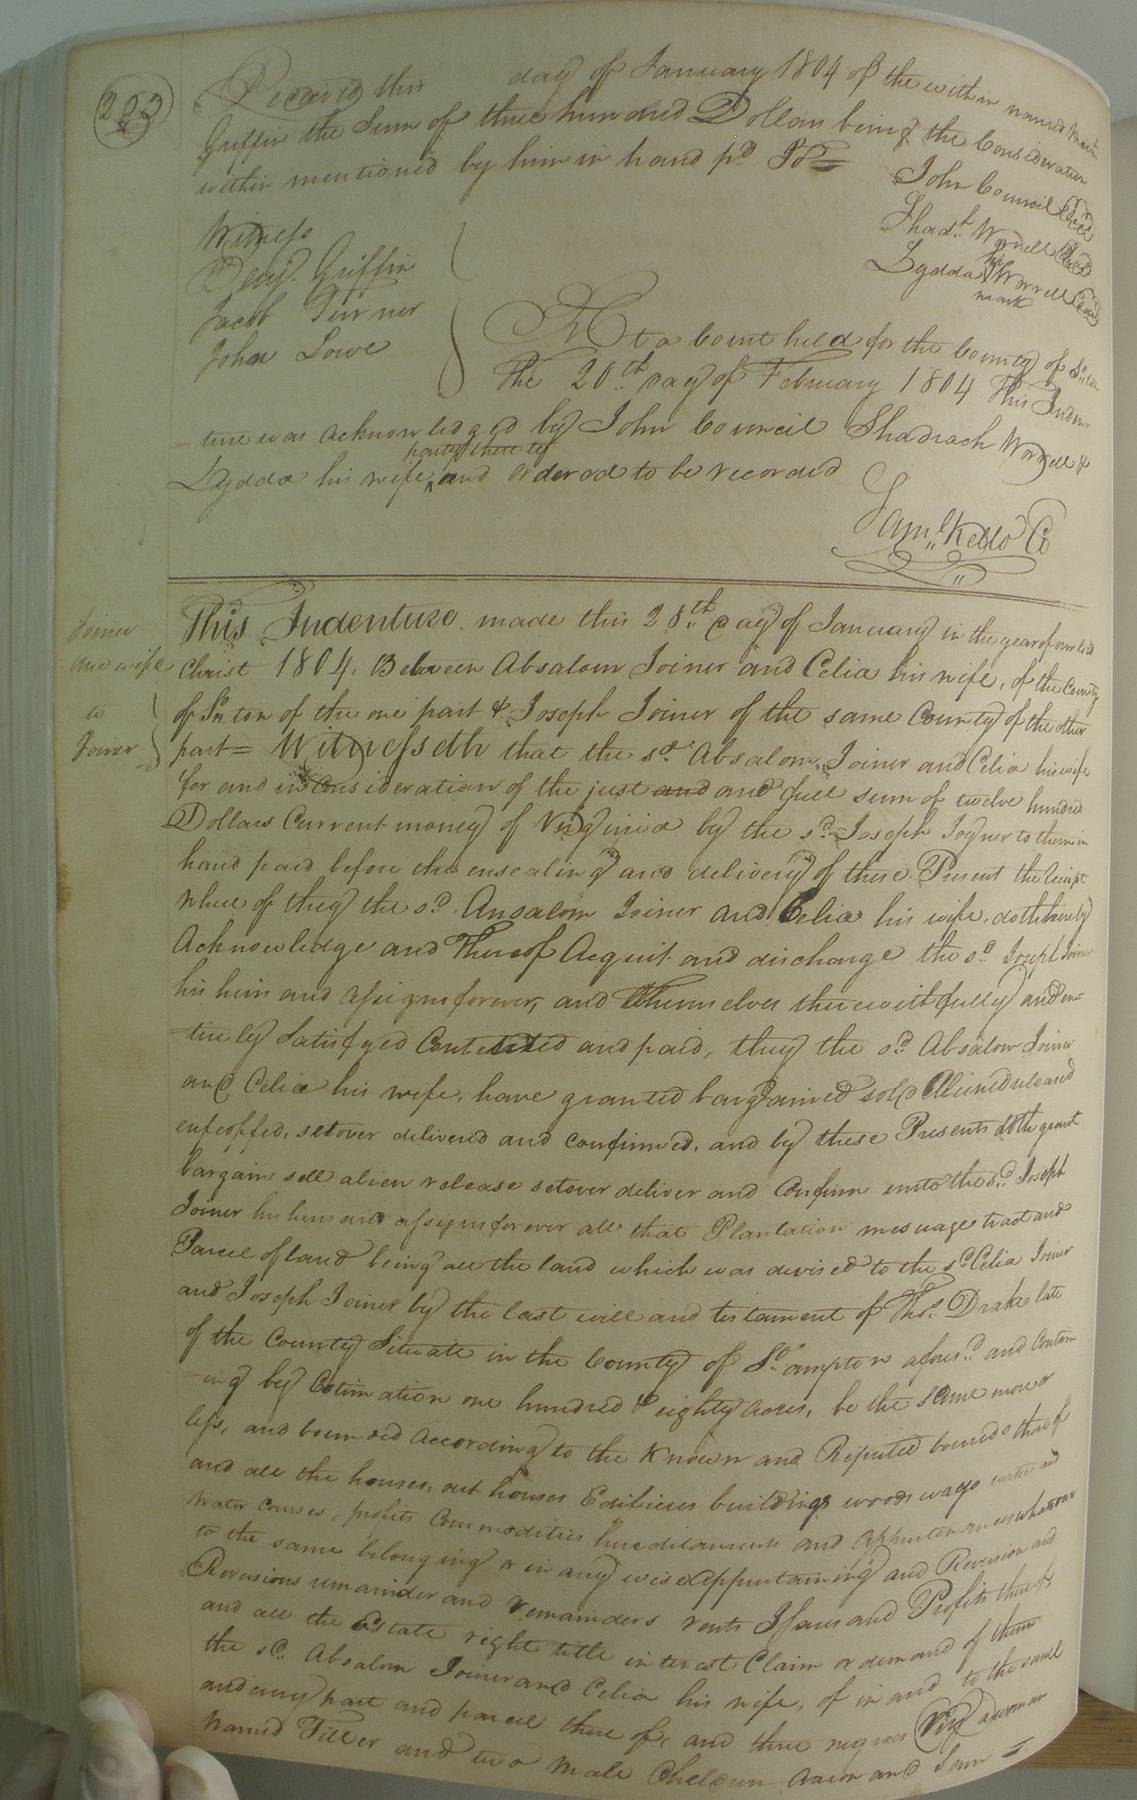 223
Received this day of January 1804 of the within named
Griffin the Sum of three hundred Dollars being the Consideration
within mentioned by him in hand pd
John Council Seal
Witness
Shadh. Worrell Seal
Benj. Griffin
Lydda Worrell Seal
mark
Jacob Turner
John Lowe
At a Court held for the County of
The 20th day of February 1804 This Inden-
-ture was acknowledged by John Council Shadrach Worrell &
Lydda his wife party thereto and ordered to be recorded
Saml. Kello C
Joiner
and wife
to
Joiner
This Indenture made this 28th day of January in the year of our lord
Christ 1804. Between Absalom Joiner and Celia his wife, of the County
of Sn ton of the one part & Joseph Joiner of the same County of the other
part = Witnesseth that the sd. Absalom Joiner and Celia his wife
for and in Consideration of the just and and full sum of twelve hundred
Dollars Current money of Virginia by the sd. Joseph Joyner to them in
hand paid before the ensealing and delivery of these Present the Receipt
where of they the sd. Ansalom Joiner and Celia his wife, doth hereby
Acknowledge and Thereof Acquit and discharge the sd Joseph Joiner
his heirs and assigns forever, and themselves therewith fully and en-
-tirely Satisfyed Contented and paid, they the sd Absalom Joiner
and Celia his wife, have granted bargained sold Aliened released
enfeoffed, setover delivered and confirmed, and by these Presents doth grant
bargain sell alien release setover deliver and Confirm unto the sd Joseph
Joiner his heirs and assigns forever all that Plantation mesuage tract and
Parcel of land being all the land which was devised to the sd Celia Joiner
and Joseph Joiner by the last will and testament of Thos. Drake late
of the County Situate in the County of So.ampton afoursd. and Contain
-ing by Estimation one hundred & eighty acres, be the same more or
less, and bounded According to the Known and Reputed bounds thereof
and all the houses, out houses Edifices buildings woods ways waters and
Water Courses, profits Commodities hereditaments and appurtenances whatsoever
to the same belonging or in any wise Appurtaining and Revirsion and
Reversions remainder and remainders rents Issues and Profits thereof
and all the Estate right title interest Claim or demand of them
the sd. Absalom Joiner and Celia his wife, of in and to the same
and every part and parcel there of, and three negroes (Viz) a woman
Named Filler and two Male Children Aaron and Sam